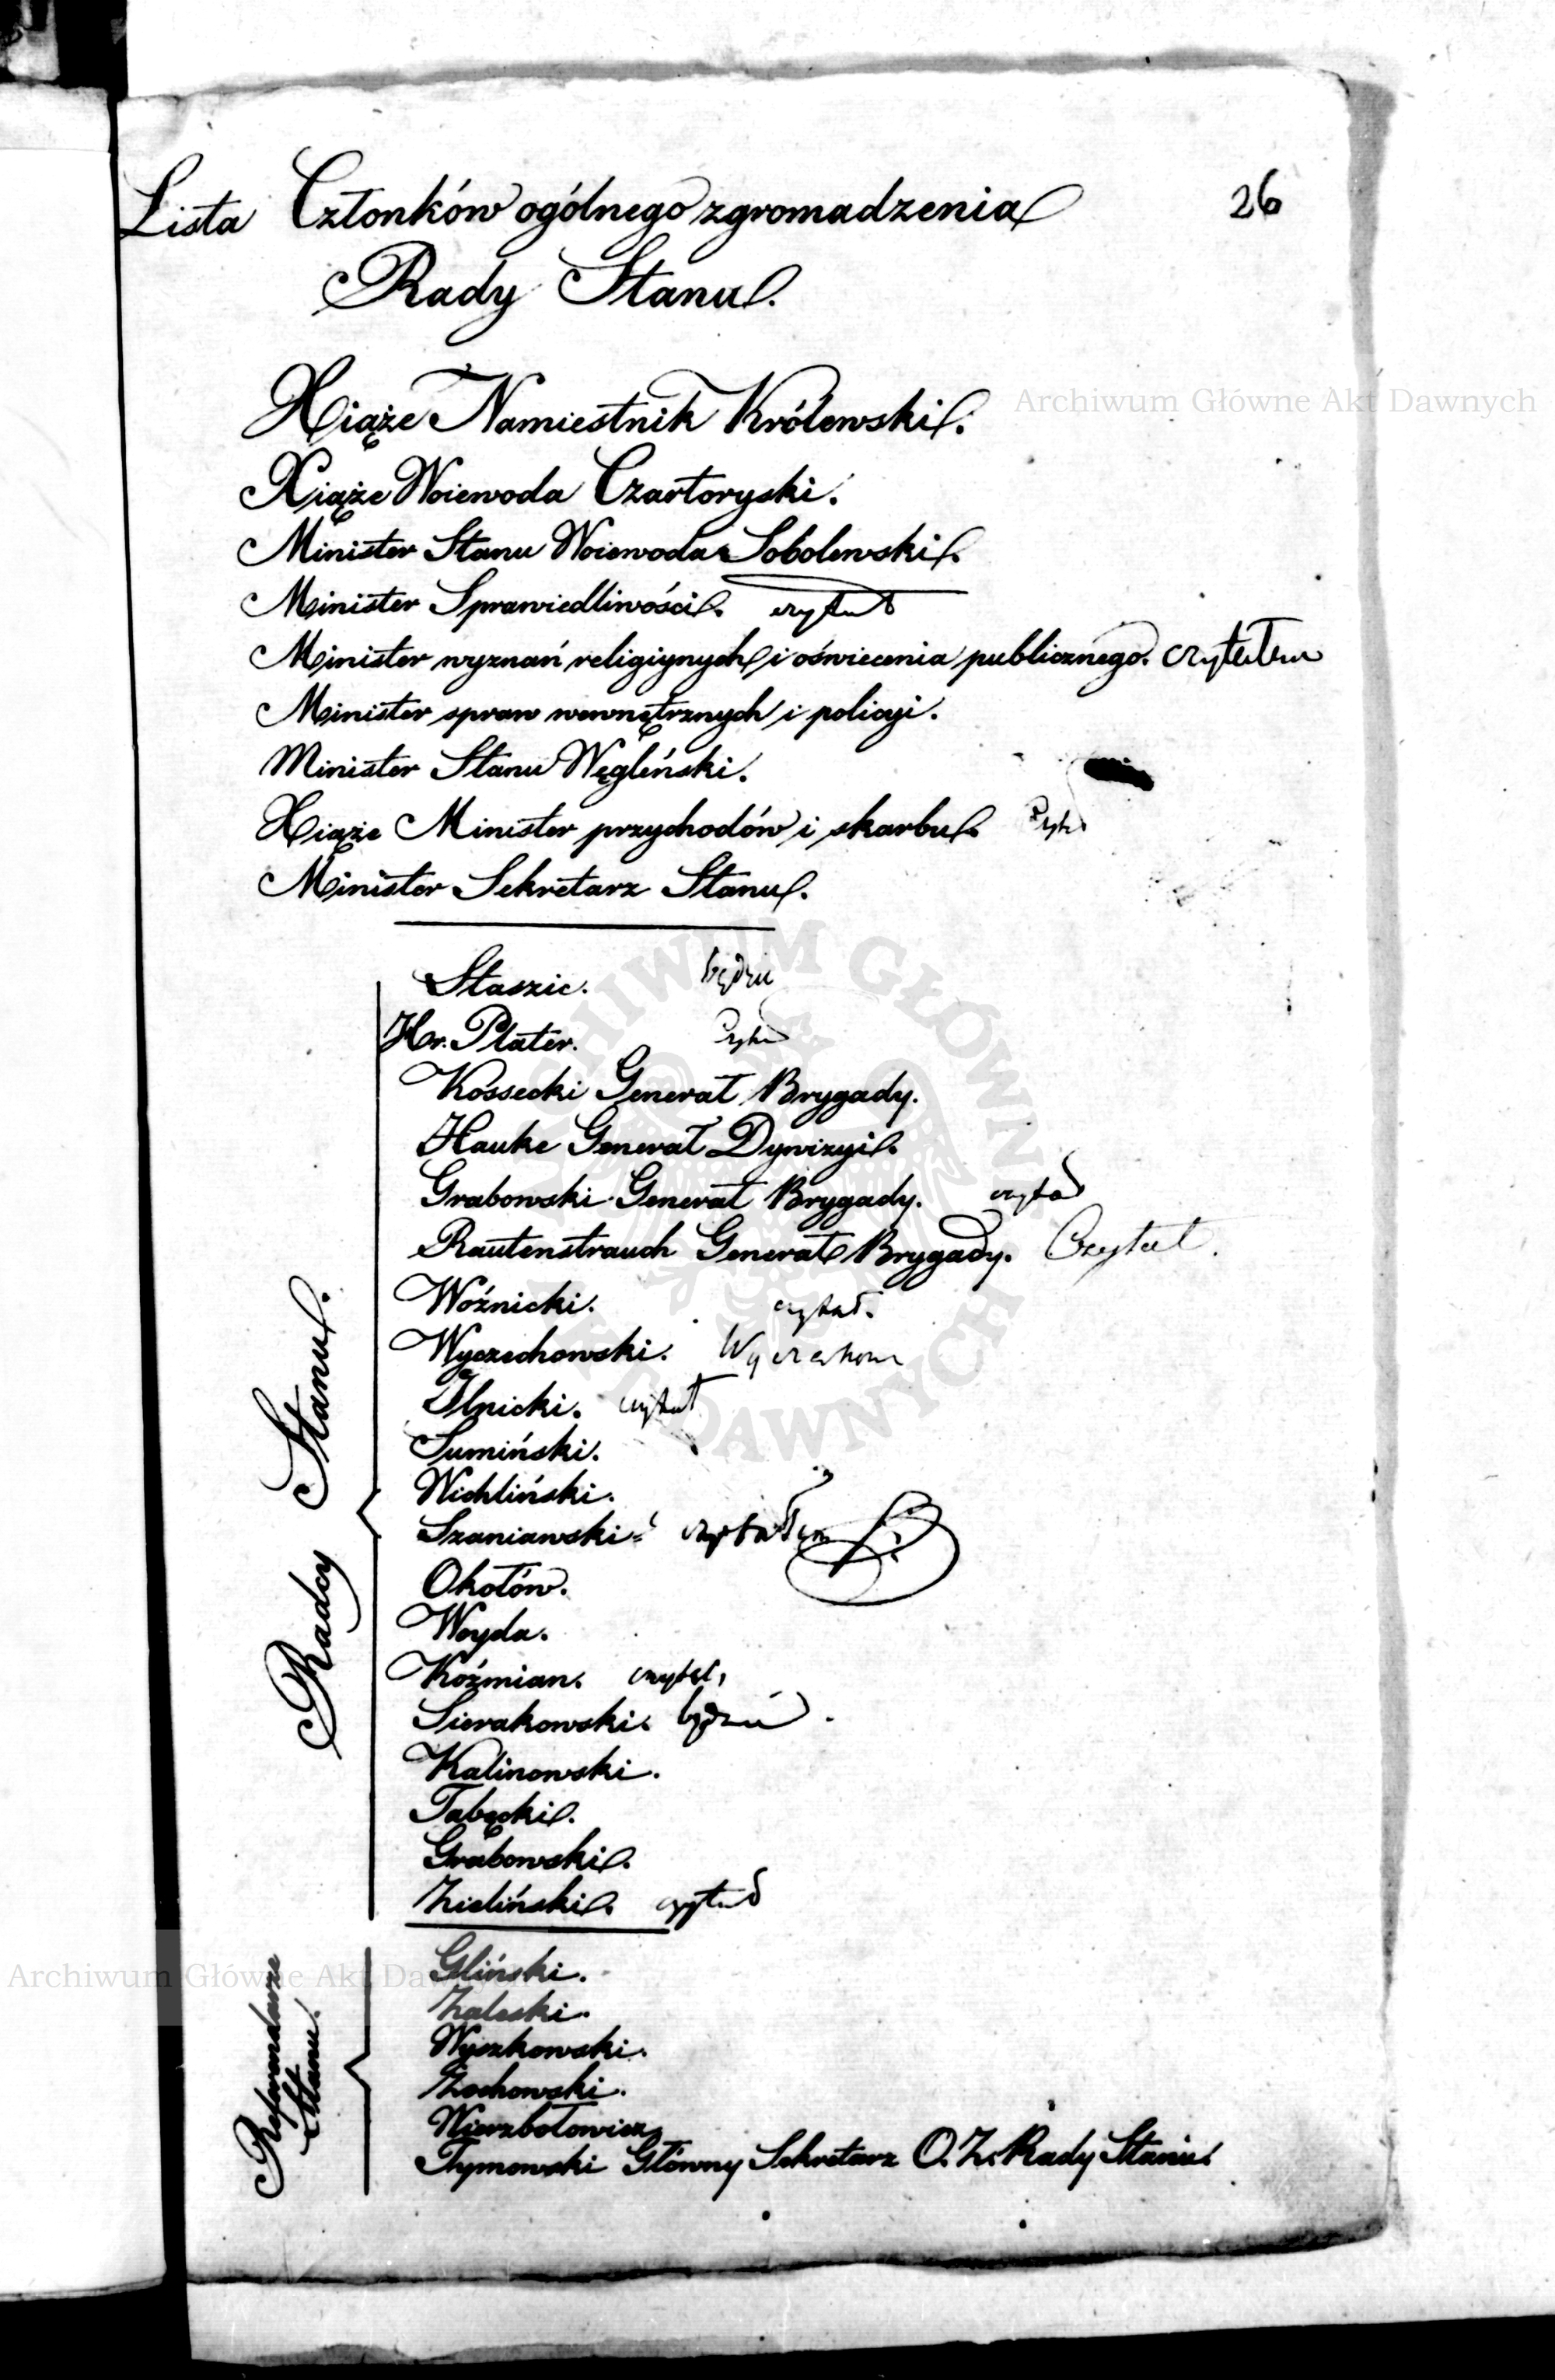 26
Lista Członków ogólnego zgromadzenia
Rady Stanu.
Xiąże Namiestnik Królewski.
Xiąże Woiewoda Czartoryski.
Minister Stanu Woiewoda Sobolewski.
Minister Sprawiedliwości. czytał
Minister wyznań religiynych i oświecenia publicznego. czytałem
Minister spraw wewnętrznych i policyi.
Minister Stanu Węgleński.
Xiąże Minister przychodów i skarbu.
Minister Sekretarz Stanu.
Radcy Stanu.
Staszic. będzie
Hr. Plater.
Kossecki Generał Brygady.
Hauke Generał Dywizyi.
Grabowski Generał Brygady. czytał
Rautenstrauch Generał Brygady. Czytał.
Woźnicki. czytał.
Wyczechowski.
Ilnicki. czytał
Sumiński.
Wichliński.
Szaniawski. czytałem
Okołów.
Woyda.
Koźmian. czytał,
Sierakowski. będzie.
Kalinowski.
Tabęcki.
Grabowski.
Zieliński. czytał
Referendarze
Stanu.
Gliński.
Zaleski.
Wyszkowski.
Żochowski.
Wierzbołowicz.
Tymowski Główny Sekretarz O. Z. Rady Stanu.
Archiwum Główne Akt Dawnych
Archiwum Główne Akt Dawnych
ARCHIWUM GŁÓWNE AKT DAWNYCH